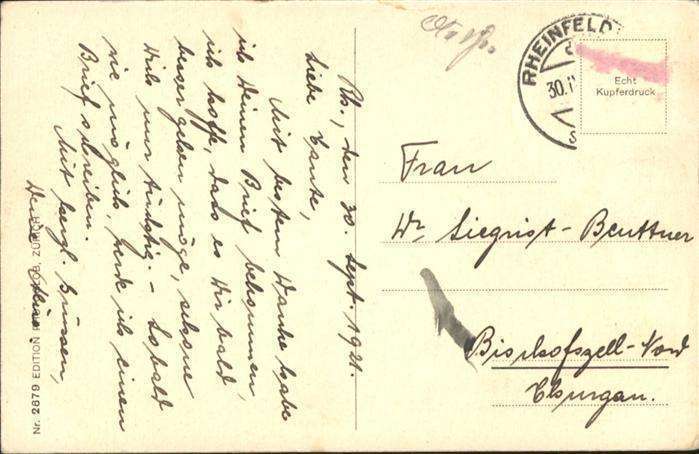 Rh., den 30. Sept. 1921.
Liebe Tante,
Mit bestem Danke habe
ich Deinen Brief bekommen,
ich hoffe, dass es Dir bald
besser gehen möge, schone
Dich nur tüchtig. – Sobald
wie möglich, werde ich einen
Brief schreiben.
Mit herzl. Grüssen,
Nr. 2679 EDITION ZÜRICH
RHEINFELD
30.
Echt
Kupferdruck
Frau
Dr Siegrist-Beuttner
Bischofszell-Nord
Thurgau.